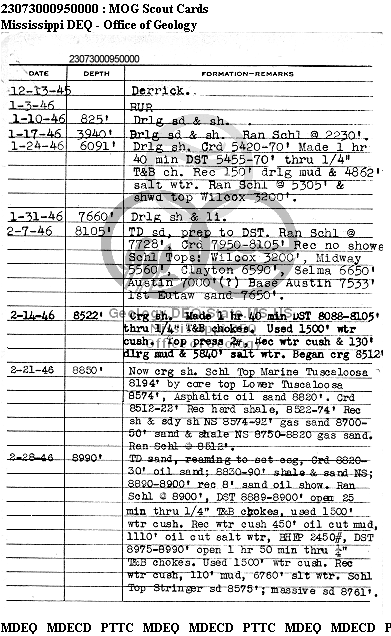 23073000950000 : MOG Scout Cards
Mississippi DEQ - Office of Geology
23073000950000
DATE DEPTH FORMATION—REMARKS
12-13-45 Derrick.
1-3-46 RUR
1-10-46 825' Drlg sd & sh.
1-17-46 3940' Drlg sd & sh. Ran Schl @ 2230'.
1-24-46 6091' Drlg sh. Crd 5420-70' Made 1 hr
40 min DST 5455-70' thru 1/4"
T&B ch. Rec 150' drlg mud & 4862'
salt wtr. Ran Schl @ 5305' &
shwd top Wilcox 3200'.
1-31-46 7660' Drlg sh & li.
2-7-46 8105' TD sd, prep to DST. Ran Schl @
7728', Crd 7950-8105' Rec no shows
Schl Tops: Wilcox 3200', Midway
5560', Clayton 6590', Selma 6650'
Austin 7000'(?) Base Austin 7533'
1st Eutaw sand 7650'.
2-14-46 8522' Crg sh. Made 1 hr 40 min DST 8088-8105'
thru 1/4" T&B chokes. Used 1500' wtr
cush. Top press 2#, Rec wtr cush & 130'
dlrg mud & 5840' salt wtr. Began crg 8512'
2-21-46 8850' Now crg sh. Schl Top Marine Tuscaloosa
8194' by core top Lower Tuscaloosa
8574', Asphaltic oil sand 8820'. Crd
8512-22' Rec hard shale, 8522-74' Rec
sh & sdy sh NS 8574-92' gas sand 8700-
50' sand & shale NS 8750-8820 gas sand.
Ran Schl @ 8512'.
2-28-46 8990' TD sand, reaming to set csg, Crd 8820-
30' oil sand; 8830-90' shale & sand NS;
8890-8900' rec 8' sand oil show. Ran
Schl @ 8900', DST 8889-8900' open 25
min thru 1/4" T&B chokes, used 1500'
wtr cush. Rec wtr cush 450' oil cut mud,
1110' oil cut salt wtr, BHFP 2450#, DST
8975-8990' open 1 hr 50 min thru ¼"
T&B chokes. Used 1500' wtr cush. Rec
wtr cush, 110' mud, 6760' slt wtr. Schl
Top Stringer sd 8575'; massive sd 8761'.
MDEQ MDECD PTTC MDEQ MDECD PTTC MDEQ MDECD P